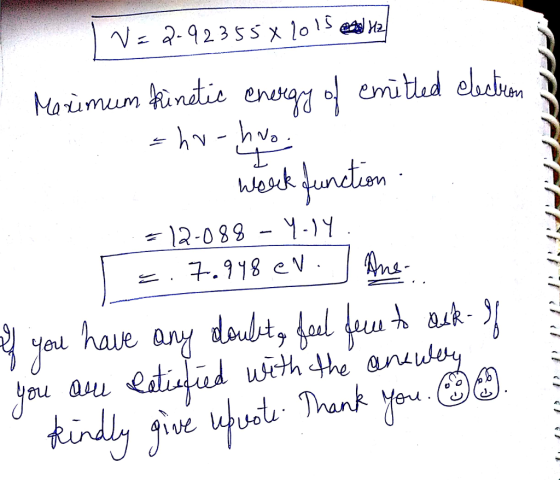 ν = 2.92355 × 10¹⁵ Hz
Maximum kinetic energy of emitted electron
= hν - hν₀.
Work function.
= 12.088 - 4.14.
= . 7.948 eV. Ans-..
If you have any doubt, feel free to ask. If
you are satisfied with the answer,
kindly give upvote. Thank you. 😊😊.